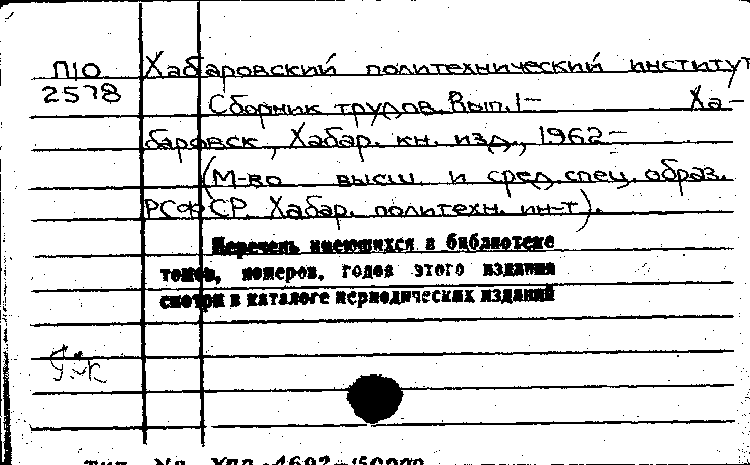 П10 Хабаровский политехнический институт
2578 Сборник трудов. Вып. 1- Ха-
баровск, Хабар. кн. изд., 1962-
(М-во высш. и сред. спец. образ.
РСФСР. Хабар. политехн. ин-т).
Перечень имеющихся в библиотеке
томов, номеров, годов этого издания
смотри в каталоге периодических изданий